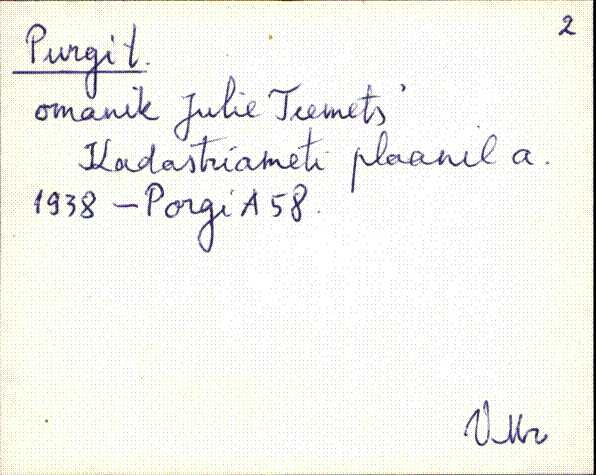 2
Purgi t.
omanik Julie Teemets'
Kadastriameti plaanil a.
1938 – Porgi A 58.
VMr